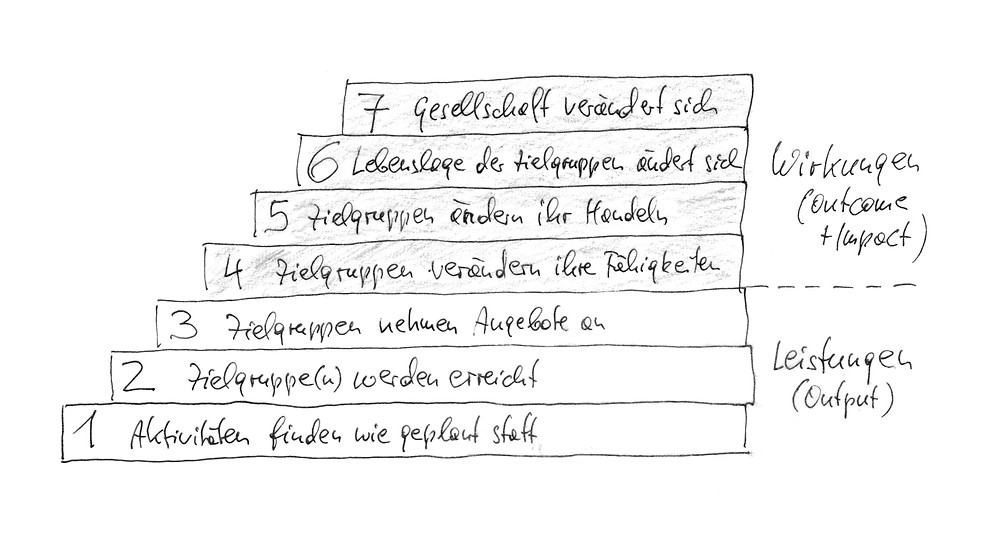 7 Gesellschaft verändert sich
6 Lebenslage der Zielgruppen ändert sich
5 Zielgruppen ändern ihr Handeln
4 Zielgruppen verändern ihre Fähigkeiten
3 Zielgruppen nehmen Angebote an
2 Zielgruppe(n) werden erreicht
1 Aktivitäten finden wie geplant statt
Wirkungen
(Outcome
+Impact)
Leistungen
(Output)